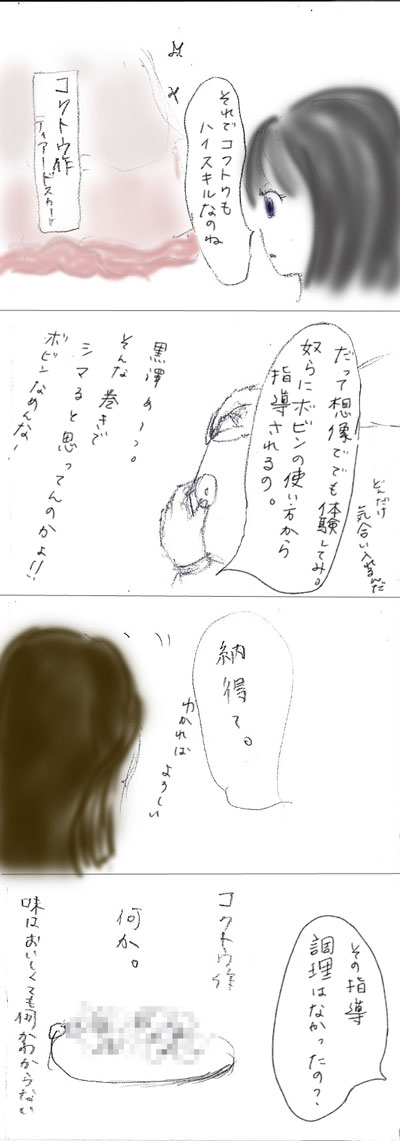 それでコクトウも
ハイスキルなのね
コクトウ作
ティアードスカート
だって想像でも体験してみ。
奴らにボビンの使い方から
指導されるの。
どんだけ
気合い入ってんだ
黒澤めーっ。
そんな巻きで
シマると思ってんのかよ!!
ボビンなめんな!
納得て。
わかれば
よろしい
その指導
調理はなかったの?
コクトウ作
何か。
味はおいしくても何かわからない